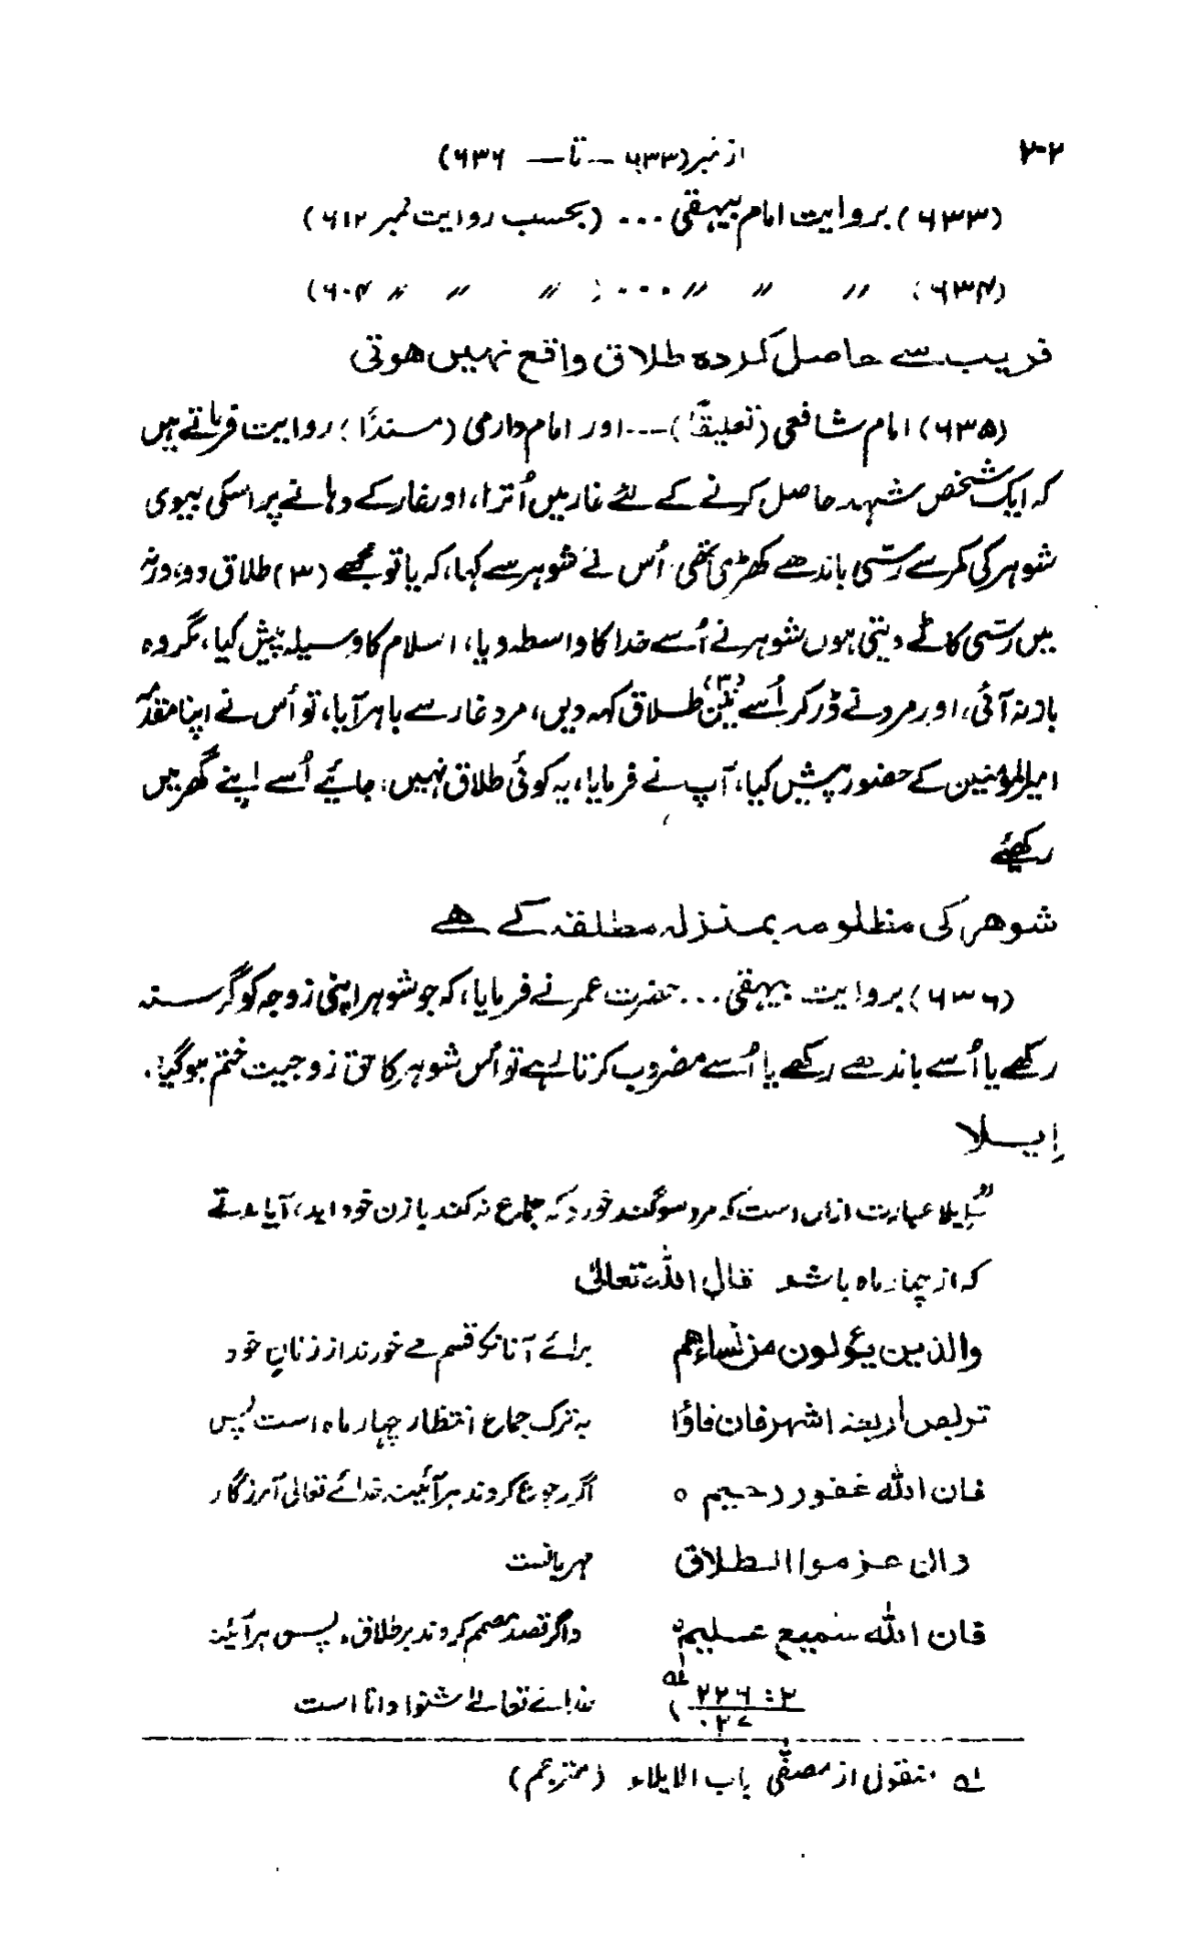 ۲۰۲ از نمبر (۶۳۳ — تا — ۶۳۶)
(۶۳۳) بروایت امام بیہقی ... (بحسب روایت نمبر ۶۱۲)
(۶۳۴) 〃 〃 〃 .... ( 〃 〃 〃 ۶۰۴)
فریب سے حاصل کردہ طلاق واقع نہیں ہوتی
(۶۳۵) امام شافعی (تعلیقًا) ... اور امام دارمی (مسندًا) روایت فرماتے ہیں
کہ ایک شخص شہد حاصل کرنے کے لئے غار میں اُترا، اور غار کے دہانے پر اسکی بیوی
شوہر کی کمر سے رسّی باندھے کھڑی تھی، اُس نے شوہر سے کہا، کہ یا تو مجھے (۳) طلاق دو، ورنہ
میں رسّی کاٹے دیتی ہوں شوہر نے اُسے خدا کا واسطہ دیا، اسلام کا وسیلہ پیش کیا، مگر وہ
باز نہ آئی، اور مرد نے ڈر کر اُسے تین (۳) طلاق کہہ دیں، مرد غار سے باہر آیا، تو اُس نے اپنا مقدمہ
امیرالمؤمنین کے حضور پیش کیا، آپ نے فرمایا، یہ کوئی طلاق نہیں، جائیے اُسے اپنے گھر میں
رکھئے
شوہر کی مظلومہ بمنزلہ مطلقہ کے ہے
(۶۳۶) بروایت بیہقی ... حضرت عمر نے فرمایا، کہ جو شوہر اپنی زوجہ کو گرسنہ
رکھے یا اُسے باندھے رکھے یا اُسے مضروب کرتا رہے تو اُس شوہر کا حق زوجیت ختم ہو گیا.
إیلا
"إیلا عبارت ازاں است کہ مرد سوگند خورد کہ جماع نہ کند با زن خود ابد، آیا مدتے
کہ از چہار ماہ باشد قال اللہ تعالیٰ
والذین یؤلون من نساءهم برائے آنانکہ قسم مے خورند از زنانِ خود
تربص اربعة اشهر فان فاؤا بہ ترک جماع انتظار چہار ماہ است پس
فان الله غفور رحیم ○ اگر رجوع کردند ہر آئینہ خدائے تعالیٰ آمرزگار
وان عزموا الطلاق مہربانست
فان الله سمیع علیم○ واگر قصد مصمم کردند بر طلاق، پس ہر آئینہ
۲:۲۲۶ / ۲۲۷ ؎۱ خدائے تعالےٰ شنوا دانا است
؎۱ منقول از مصفّٰی باب الایلاء (مترجم)